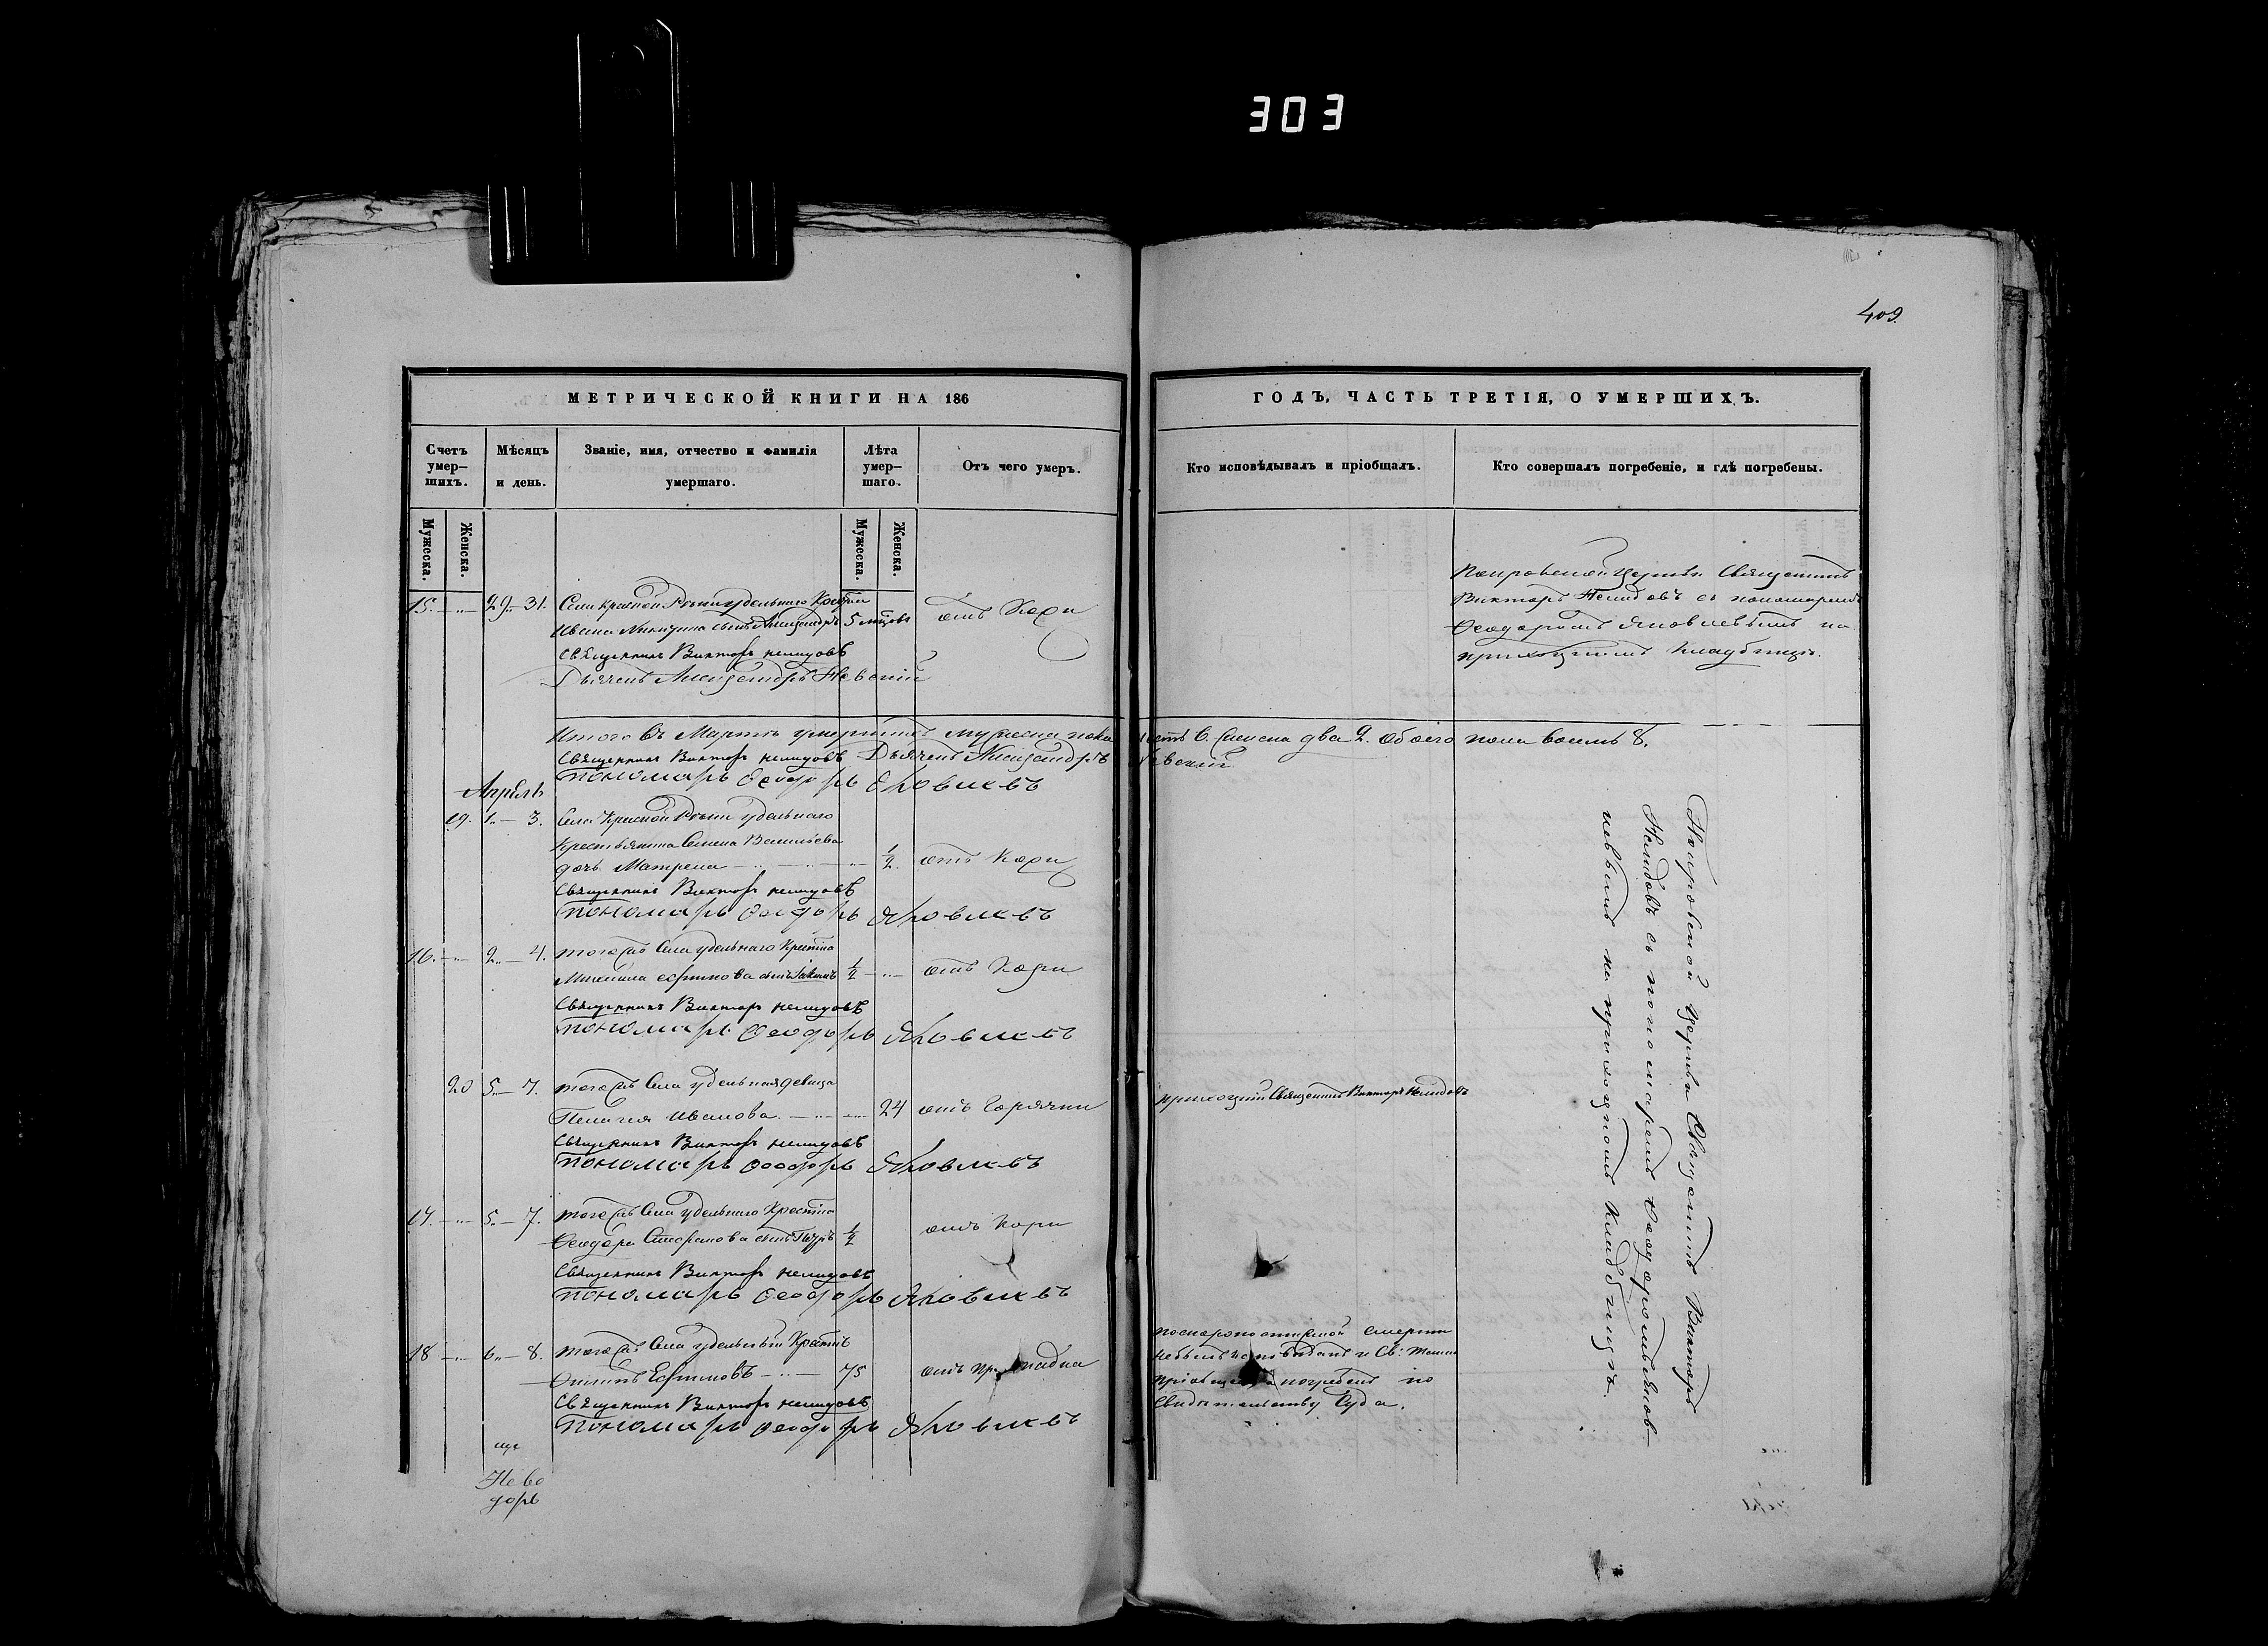 303
409.
МЕТРИЧЕСКОЙ КНИГИ НА 186
ГОДЪ, ЧАСТЬ ТРЕТІЯ, О УМЕРШИХЪ.
Счетъ умер-шихъ.
Мѣсяцъ и день.
Званіе, имя, отчество и фамилія умершаго.
Лѣта умер-шаго.
Отъ чего умеръ.
Кто исповѣдывалъ и пріобщалъ.
Кто совершалъ погребеніе, и гдѣ погребены.
Мужеска.
Женска.
Мужеска.
Женска.
15. 29. 31. Села Красной Рѣчки удѣльнаго
Ивана Никитина сынъ Александръ 5 отъ Кори
Священникъ Викторъ Нелидовъ
Дьячекъ Александръ Невскій
Покровской Церкви Священникъ
Викторъ Нелидовъ съ пономаремъ
Ѳеодоромъ Яковлевымъ на
приходскомъ кладбищѣ.
Итого въ Мартѣ умершихъ мужеска пола шесть 6. женска два 2. обоего пола восемь 8.
Священникъ Викторъ Нелидовъ Дьячекъ Александръ Невскій
пономарь Ѳеодоръ Яковлевъ
Апрѣль
19. 1. — 3. Села Красной Рѣчки удѣльнаго
Крестьянина Семена Васильева
дочь Матрена ½. отъ Кори
Священникъ Викторъ Нелидовъ
пономарь Ѳеодоръ Яковлевъ
16. 2. — 4. тогожъ Села удѣльнаго
Михаила Ефимова сынъ ½ отъ Кори
Священникъ Викторъ Нелидовъ
пономарь Ѳеодоръ Яковлевъ
20 5. — 7. тогожъ Села удѣльная дѣвица
Пелагея Иванова. 24 отъ Горячки
приходскій Священникъ Викторъ Нелидовъ
Священникъ Викторъ Нелидовъ
пономарь Ѳеодоръ Яковлевъ
17. 5. — 7. тогожъ Села удѣльнаго
Ѳеодора Стефанова сынъ Петръ ½ отъ Кори
Священникъ Викторъ Нелидовъ
пономарь Ѳеодоръ Яковлевъ
18 6. — 8. тогожъ Села удѣльный
Ефимовъ 75 отъ
Священникъ Викторъ Нелидовъ
пономарь Ѳеодоръ Яковлевъ
по скоропостижной смерти
небылъ исповѣданъ и Св: Таинъ
погребенъ по
Свидѣтельству Суда.
Покровской церкви Священникъ Викторъ
Нелидовъ съ пономаремъ Ѳеодоромъ Яков-
левымъ на приходскомъ кладбищѣ.